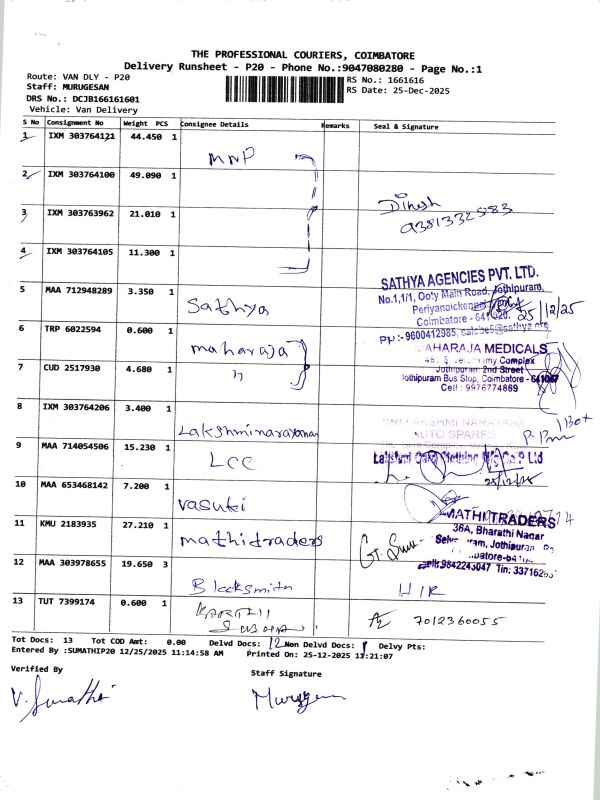 THE PROFESSIONAL COURIERS, COIMBATORE
Delivery Runsheet - P20 - Phone No.:9047080280 - Page No.:1
Route: VAN DLY - P20
RS No.: 1661616
Staff: MURUGESAN
RS Date: 25-Dec-2025
DRS No.: DCJB166161601
Vehicle: Van Delivery
S No Consignment No Weight PCS Consignee Details Remarks Seal & Signature
1 IXM 303764121 44.450 1
MNP
2 IXM 303764100 49.090 1
Dinesh
3 IXM 303763962 21.010 1
9381332583
4 IXM 303764105 11.300 1
SATHYA AGENCIES PVT. LTD.
5 MAA 712948289 3.350 1
No.1,1/1, Ooty Main Road, Jothipuram,
Sathya
Coimbatore - 641020. 25/12/25
6 TRP 6022594 0.600 1
PH:- 9600412985,
maharaja
MAHARAJA MEDICALS
Complex
7 CUD 2517930 4.680 1
Jothipuram 2nd Street
"
Jothipuram Bus Stop, Coimbatore - 641047
Cell : 9976774869
8 IXM 303764206 3.400 1
SRI LAKSHMI NARAYANA
1 Box
Lakshminarayanan
AUTO SPARES
9 MAA 714054506 15.230 1
LCC
Lakshmi Card Clothing Mfg Co P Ltd
25/12/25
10 MAA 653468142 7.200 1
Vasuki
MATHI TRADERS
11 KMU 2183935 27.210 1
36A, Bharathi Nagar
mathitraders
Jothipuram
12 MAA 303978655 19.650 3
Cell: 9842243047 Tin: 33716263
Blacksmith
H/R
13 TUT 7399174 0.600 1
KARTHI
7012360055
Tot Docs: 13 Tot COD Amt: 0.00 Delvd Docs: 12 Non Delvd Docs: 1 Delvy Pts:
Entered By :SUMATHIP20 12/25/2025 11:14:58 AM Printed On: 25-12-2025 11:21:07
Verified By
Staff Signature
V. Sumathi
Murugesan